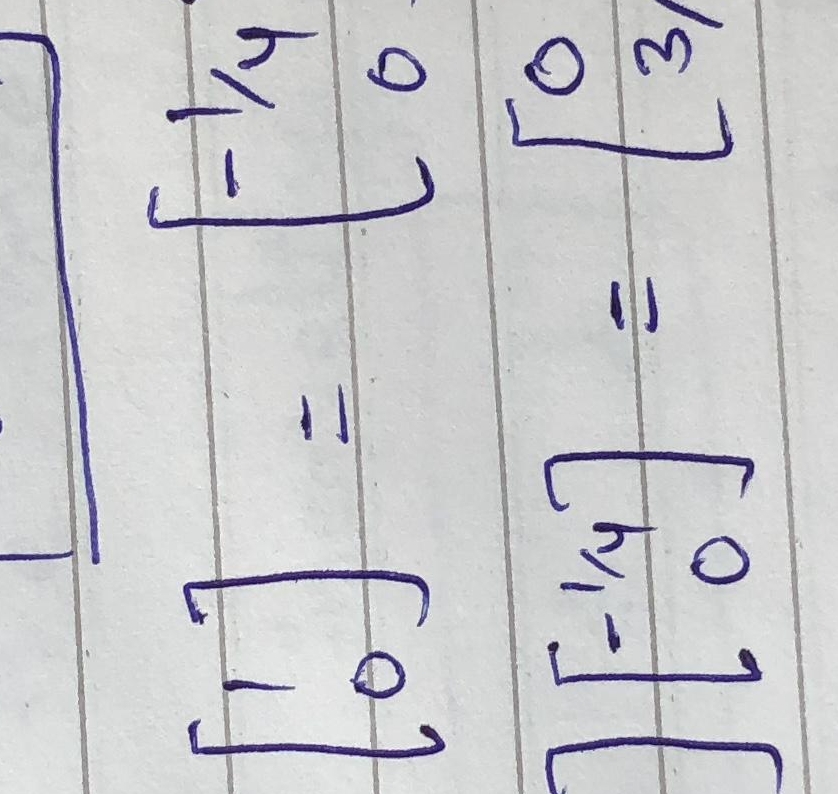 [ 1 ] = [ -1/4
[ 0 ] [ 0
] [ -1/4 ] = [ 0
] [ 0 ] [ 3/